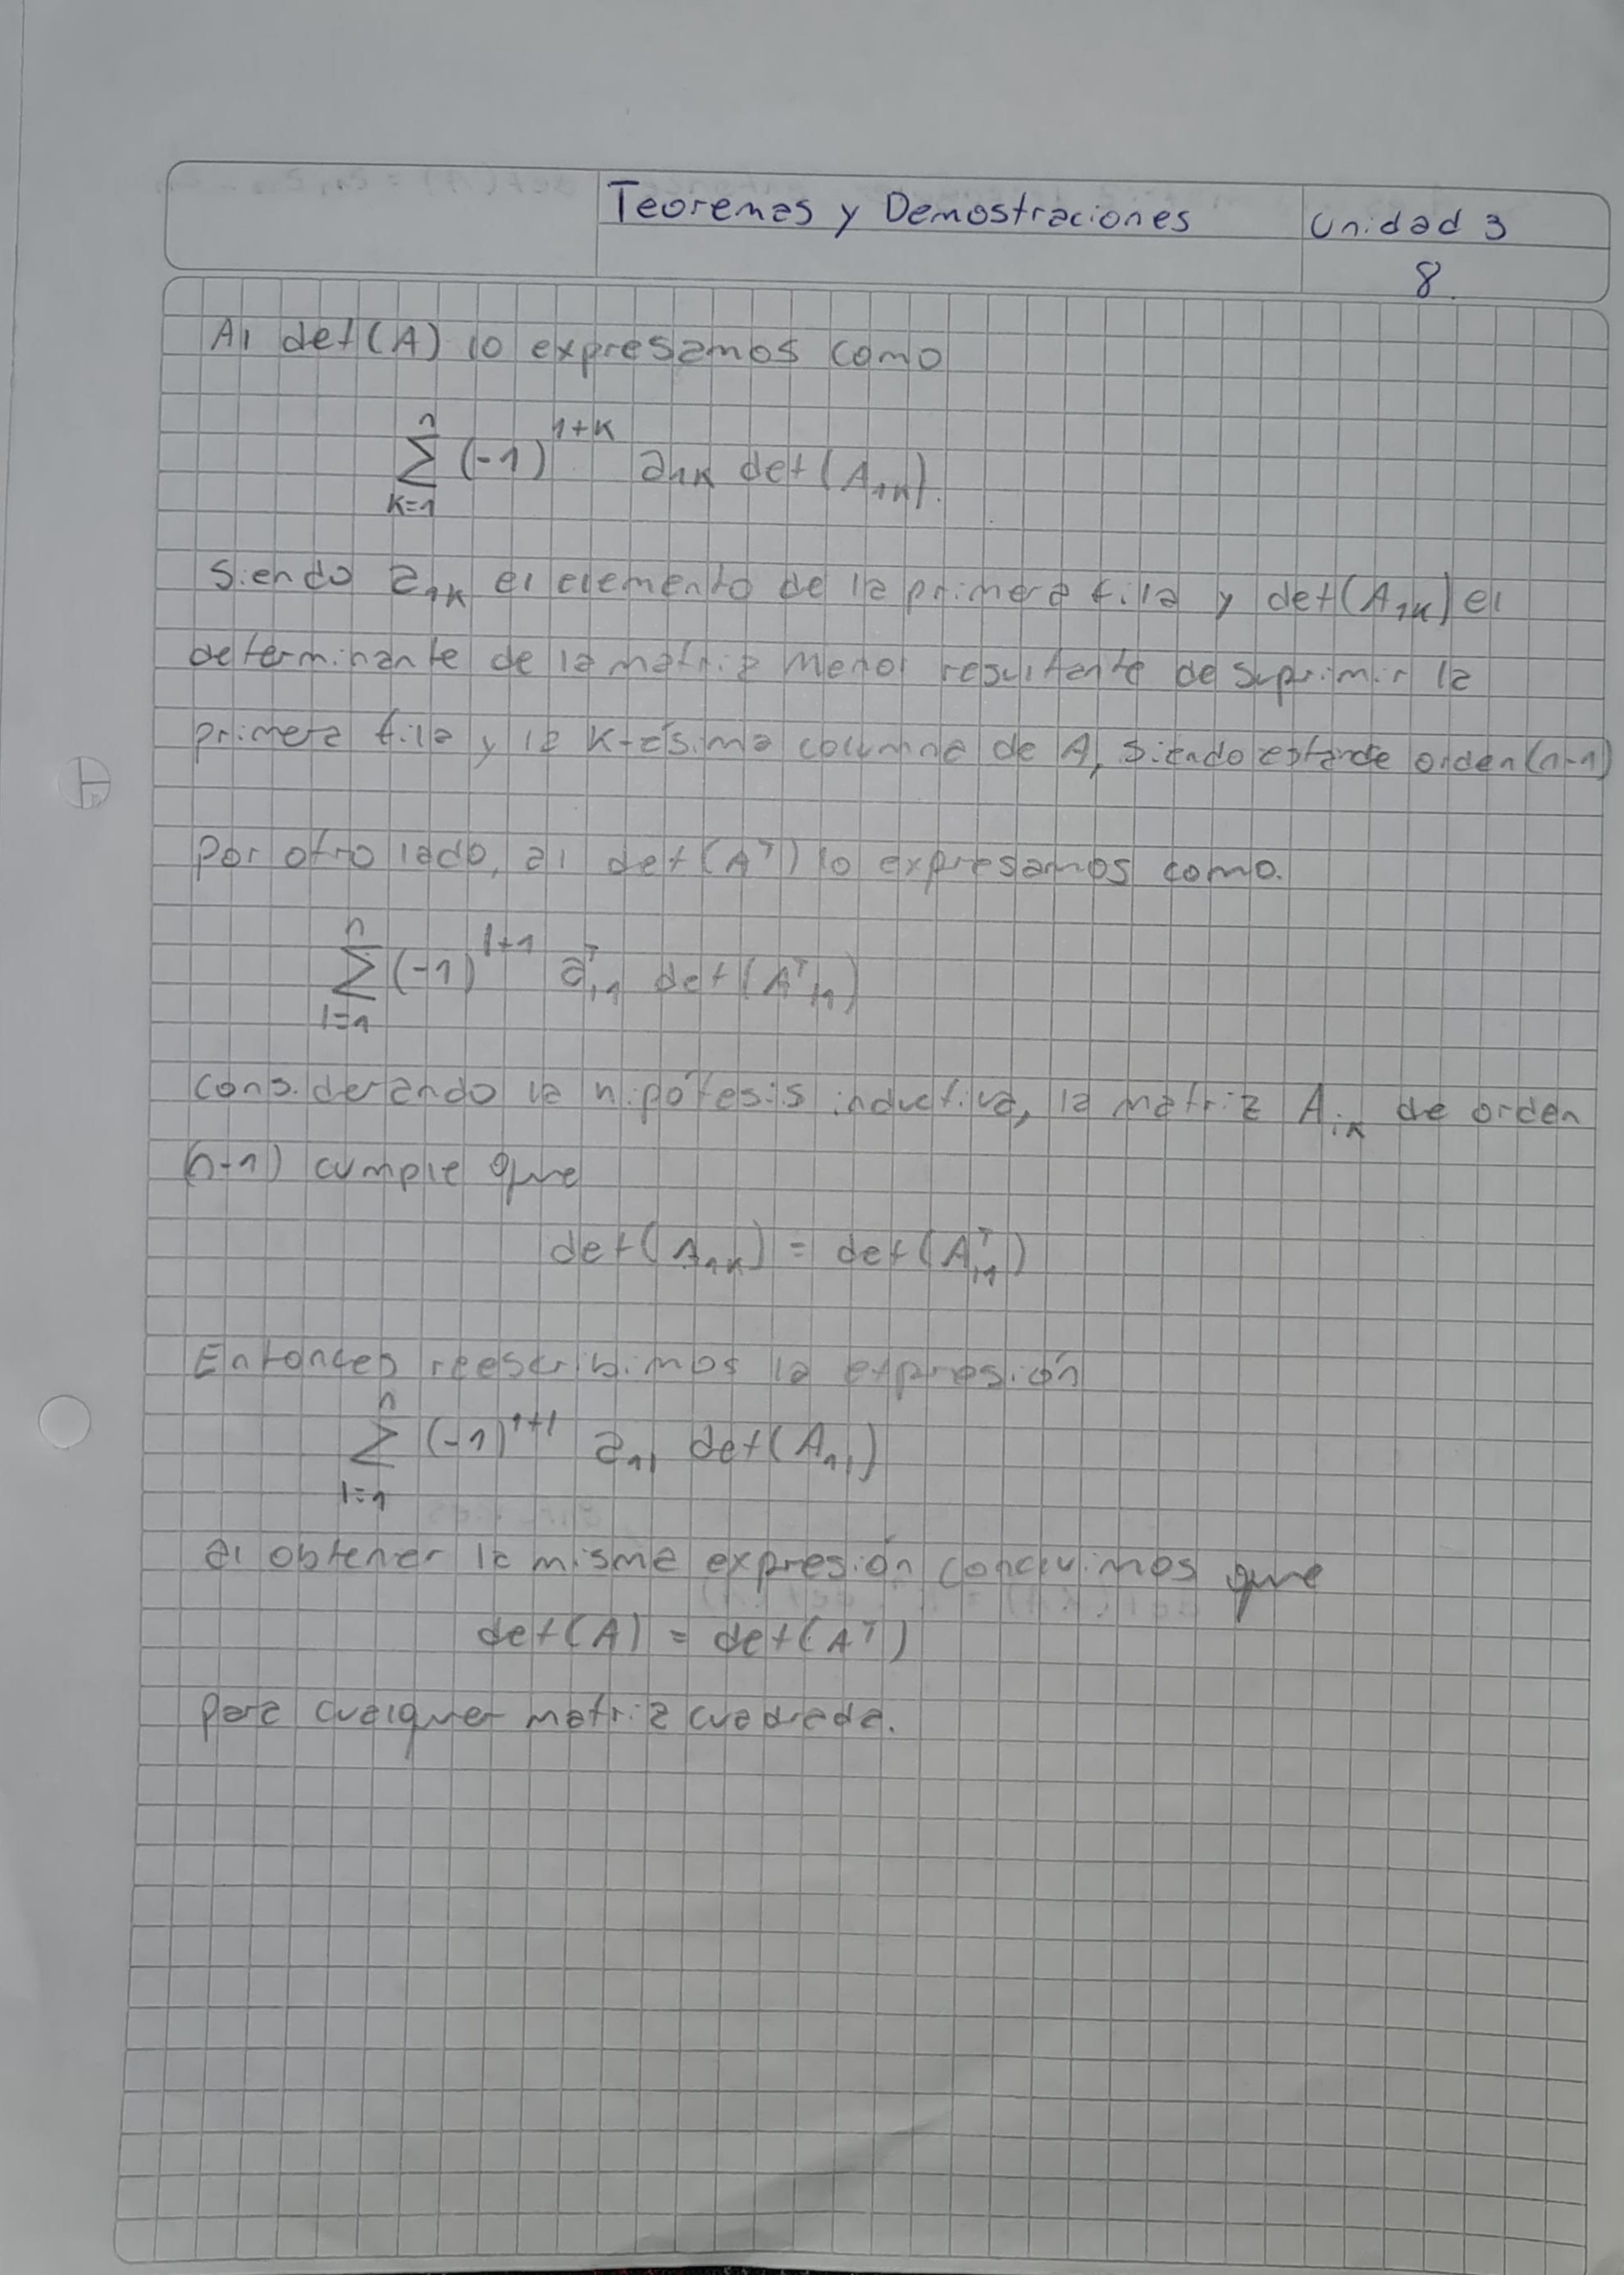 Teoremas y Demostraciones
Unidad 3
8.
Al det(A) lo expresamos como
n
∑ (-1)^{1+k} a_{1k} det(A_{1k}).
k=1
Siendo a_{1k} el elemento de la primera fila y det(A_{1k}) el
determinante de la matriz menor resultante de suprimir la
primera fila y la k-ésima columna de A, siendo esta de orden (n-1)
Por otro lado, al det(A^T) lo expresamos como.
n
∑ (-1)^{l+1} a^T_{l1} det(A^T_{l1})
l=1
Considerando la hipótesis inductiva, la matriz A_{ik} de orden
(n-1) cumple que
det(A_{1k}) = det(A^T_{l1})
Entonces reescribimos la expresión
n
∑ (-1)^{1+l} a_{1l} det(A_{1l})
l=1
al obtener la misma expresión concluimos que
det(A) = det(A^T)
para cualquier matriz cuadrada.